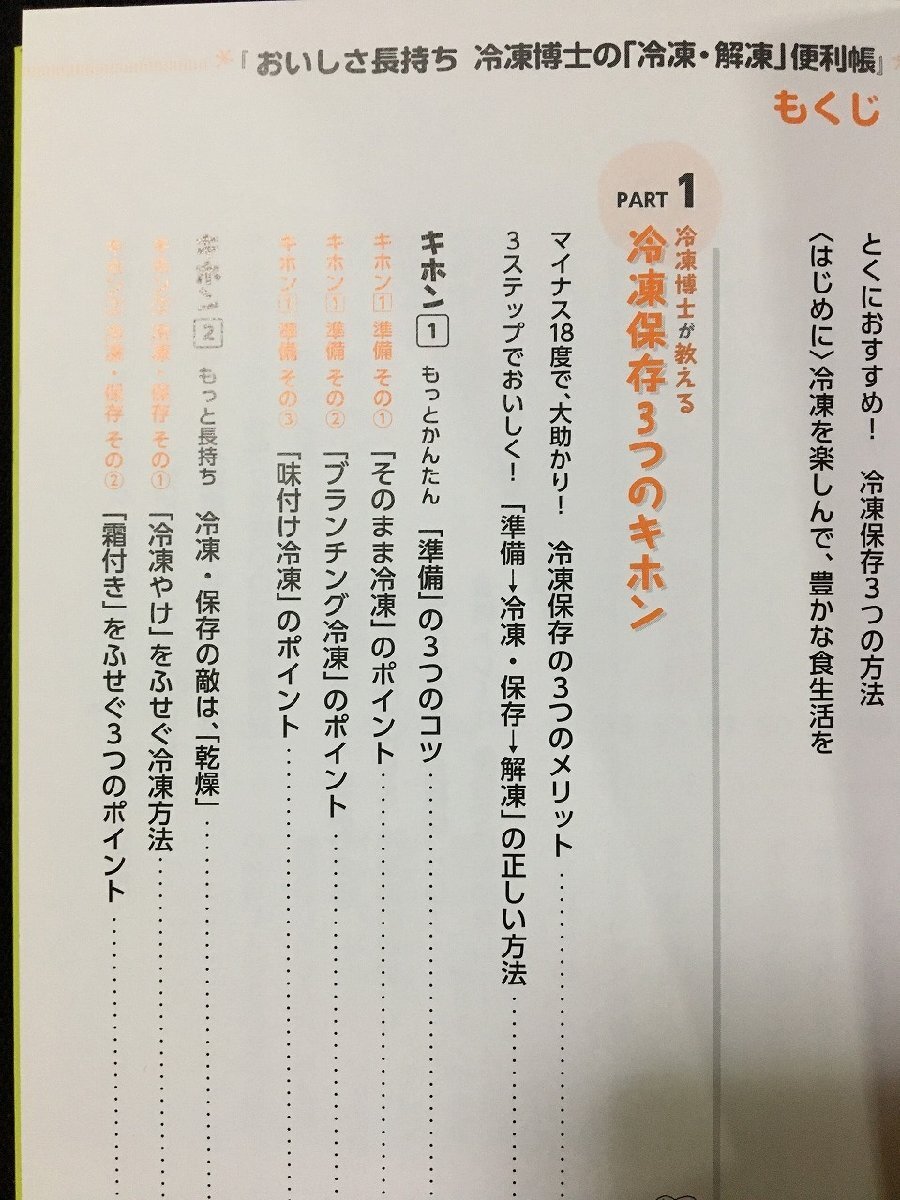 『おいしさ長持ち 冷凍博士の「冷凍・解凍」便利帳』
もくじ
とくにおすすめ! 冷凍保存3つの方法
〈はじめに〉冷凍を楽しんで、豊かな食生活を
PART 1
冷凍博士が教える
冷凍保存3つのキホン
マイナス18度で、大助かり! 冷凍保存の3つのメリット
3ステップでおいしく! 「準備→冷凍・保存→解凍」の正しい方法
キホン1 もっとかんたん 「準備」の3つのコツ
キホン1 準備 その① 「そのまま冷凍」のポイント
キホン1 準備 その② 「ブランチング冷凍」のポイント
キホン1 準備 その③ 「味付け冷凍」のポイント
キホン2 もっと長持ち 冷凍・保存の敵は、「乾燥」
キホン2 冷凍・保存 その① 「冷凍やけ」をふせぐ冷凍方法
キホン2 冷凍・保存 その② 「霜付き」をふせぐ3つのポイント